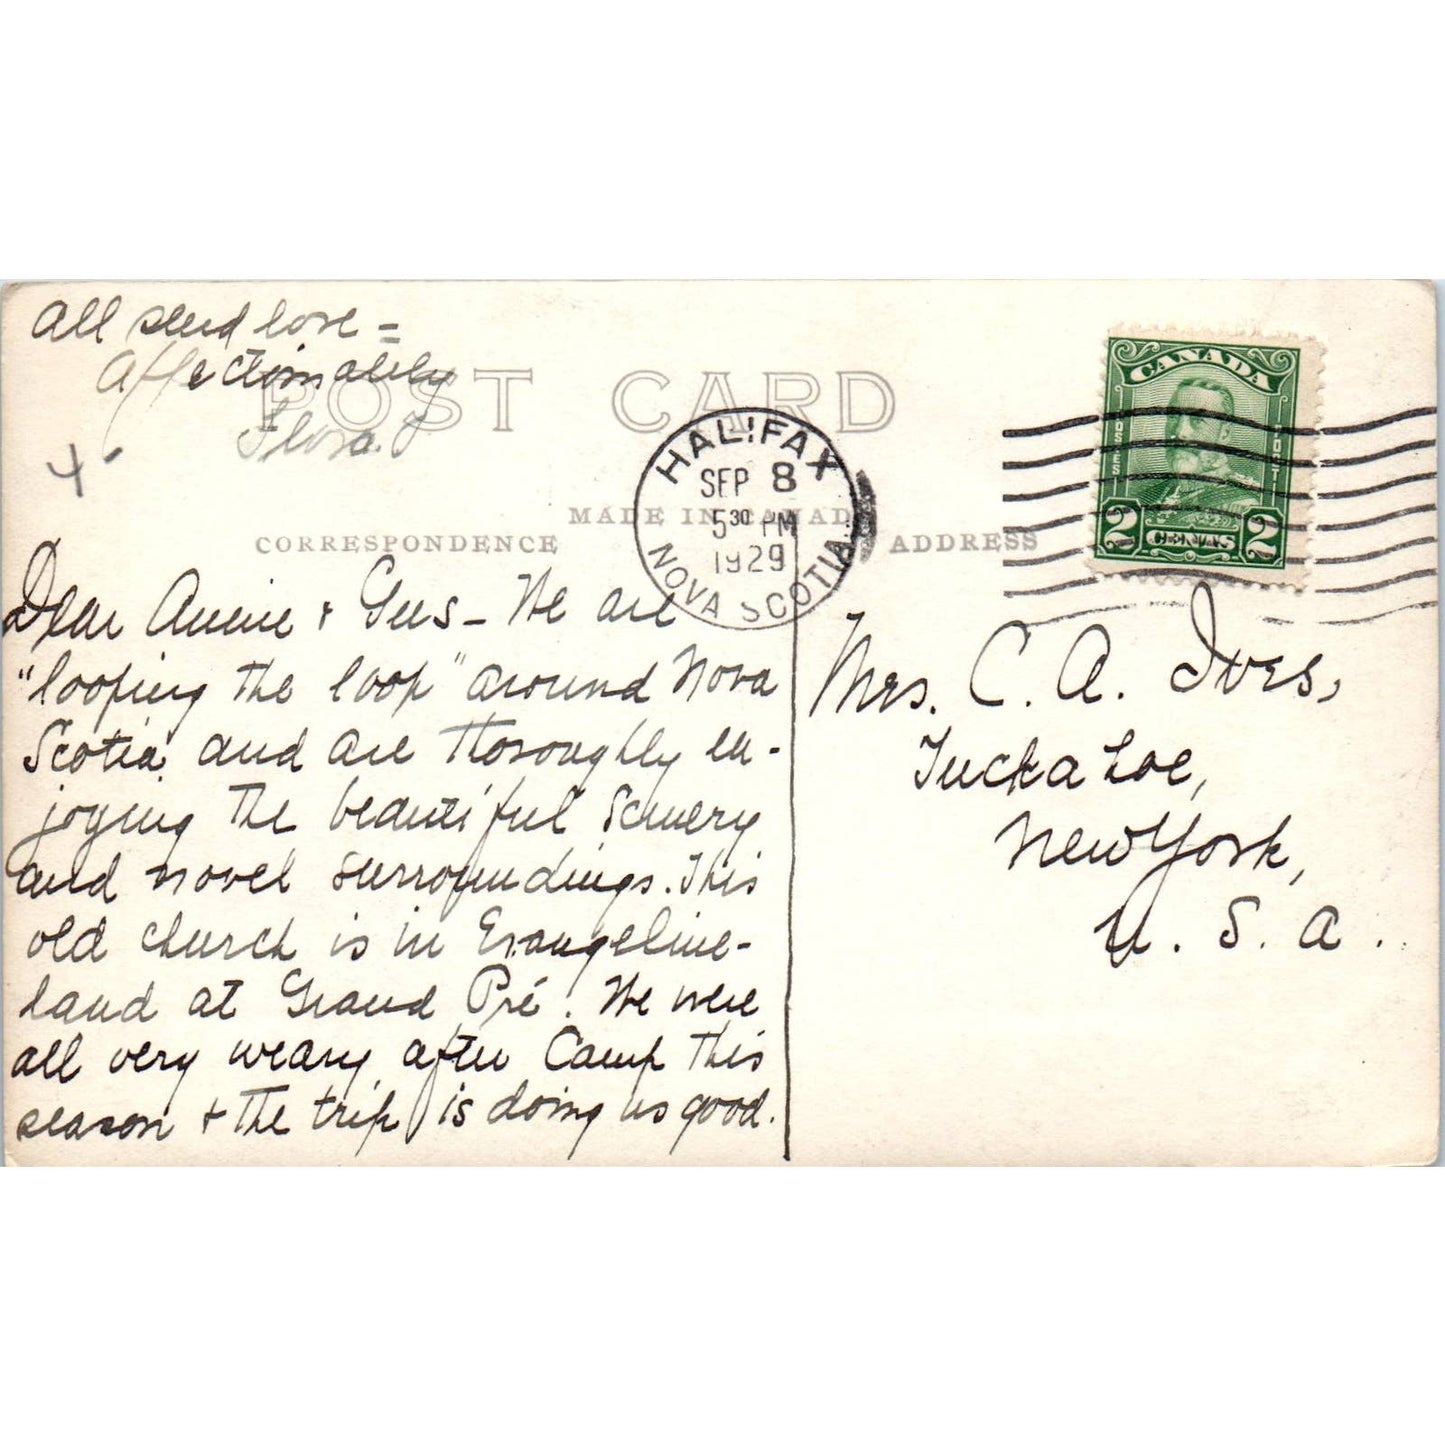 All send love =
Affectionately
Flora J
POST CARD
HALIFAX
SEP 8
5 30 PM
1929
NOVA SCOTIA
MADE IN CANADA
CORRESPONDENCE
ADDRESS
CANADA
POSTES
POSTAGE
2 CENTS 2
Dear Annie + Gus - We are
"looping the loop" around Nova
Scotia and are thoroughly en-
joying the beautiful scenery
and novel surroundings. This
old church is in Evangeline-
land at Grand Pré. We were
all very weary after Camp this
season + the trip is doing us good.
Mrs. C. A. Ives,
Tuckahoe,
New York,
U. S. A.